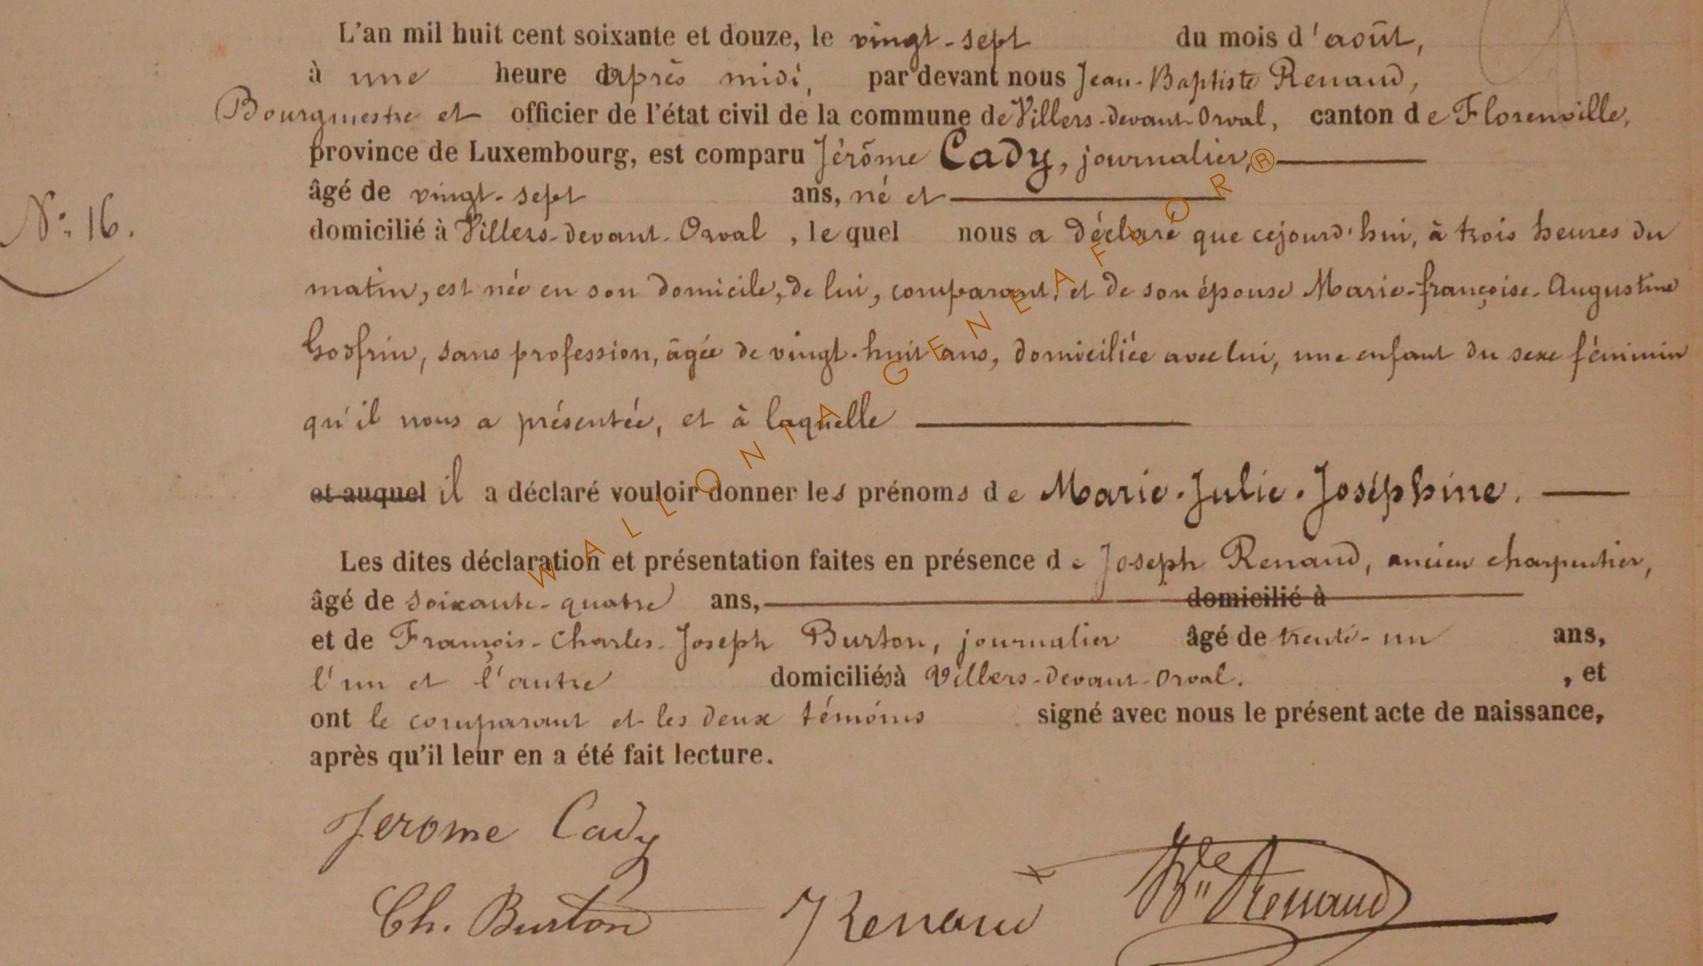 L'an mil huit cent soixante et douze, le vingt-sept du mois d'août,
à une heure après midi, par devant nous Jean-Baptiste Renaud,
Bourgmestre et officier de l'état civil de la commune de Villers-devant-Orval, canton de Florenville,
province de Luxembourg, est comparu Jérôme Cady, journalier,
âgé de vingt-sept ans, né et
N°: 16.
domicilié à Villers-devant-Orval, lequel nous a déclaré que cejourd'hui, à trois heures du
matin, est née en son domicile, de lui, comparant, et de son épouse Marie-françoise-Augustine
Godfrin, sans profession, âgée de vingt-huit ans, domiciliée avec lui, une enfant du sexe féminin
qu'il nous a présentée, et à laquelle
et auquel il a déclaré vouloir donner les prénoms de Marie-Julie-Joséphine.
Les dites déclaration et présentation faites en présence de Joseph Renaud, ancien charpentier,
âgé de soixante-quatre ans, domicilié à
et de François-Charles-Joseph Burton, journalier âgé de trente-un ans,
l'un et l'autre domiciliés à Villers-devant-Orval. , et
ont le comparant et les deux témoins signé avec nous le présent acte de naissance,
après qu'il leur en a été fait lecture.
Jerome Cady
Ch. Burton J Renaud Renaud
WALLONIA GENEAFLOR®